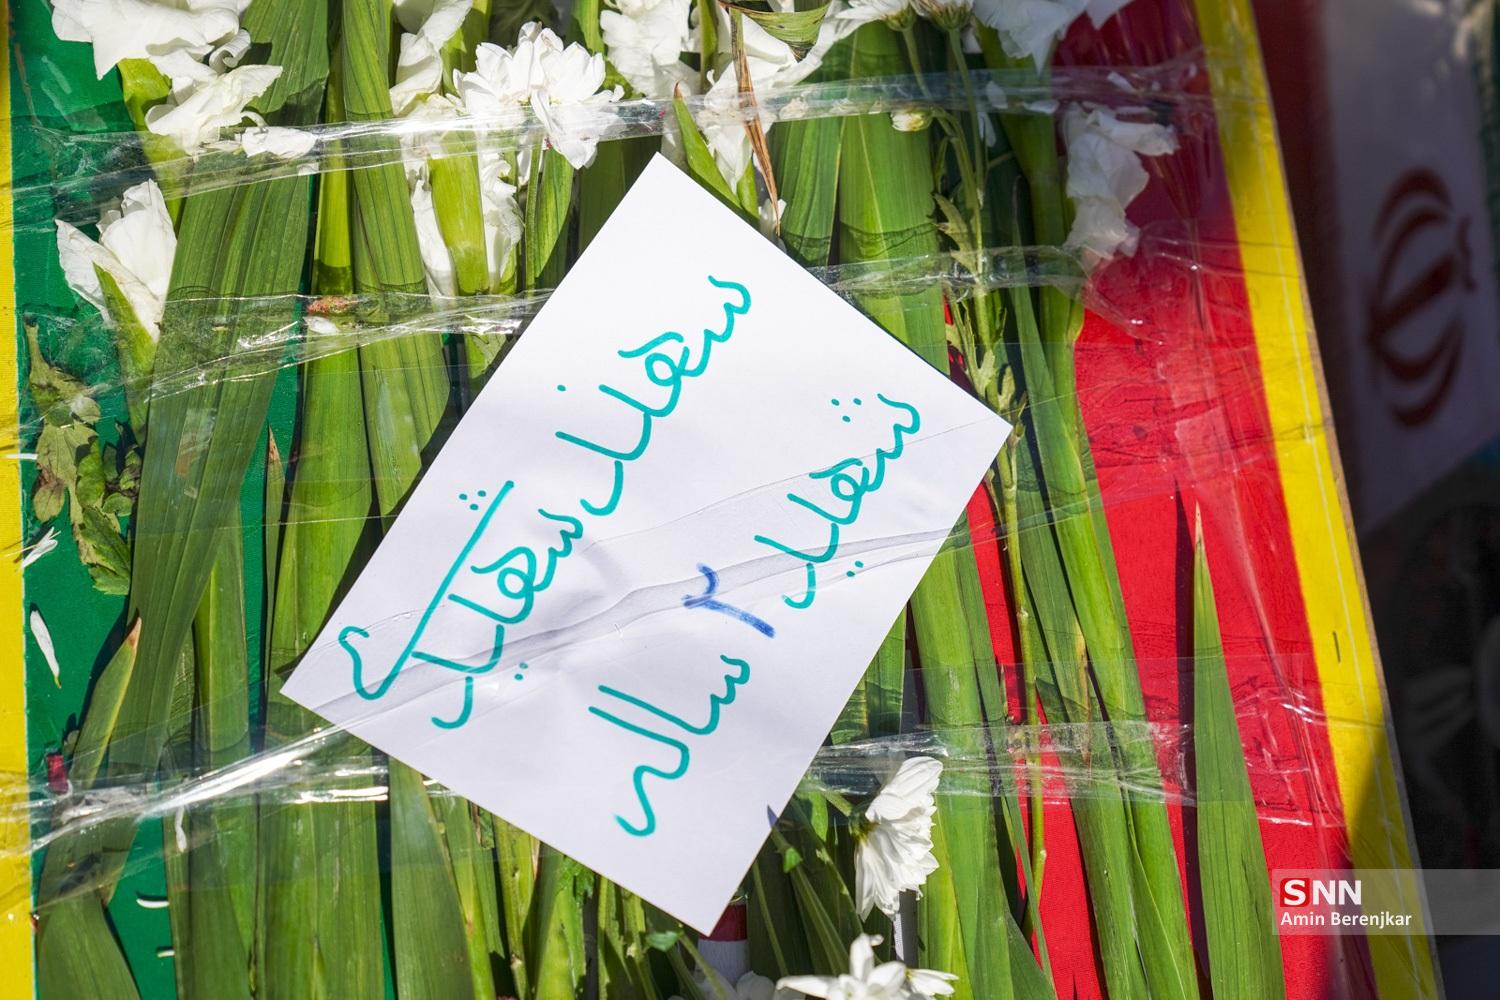 سهند شهیدی
شهید ۲ ساله
SNN
Amin Berenjkar